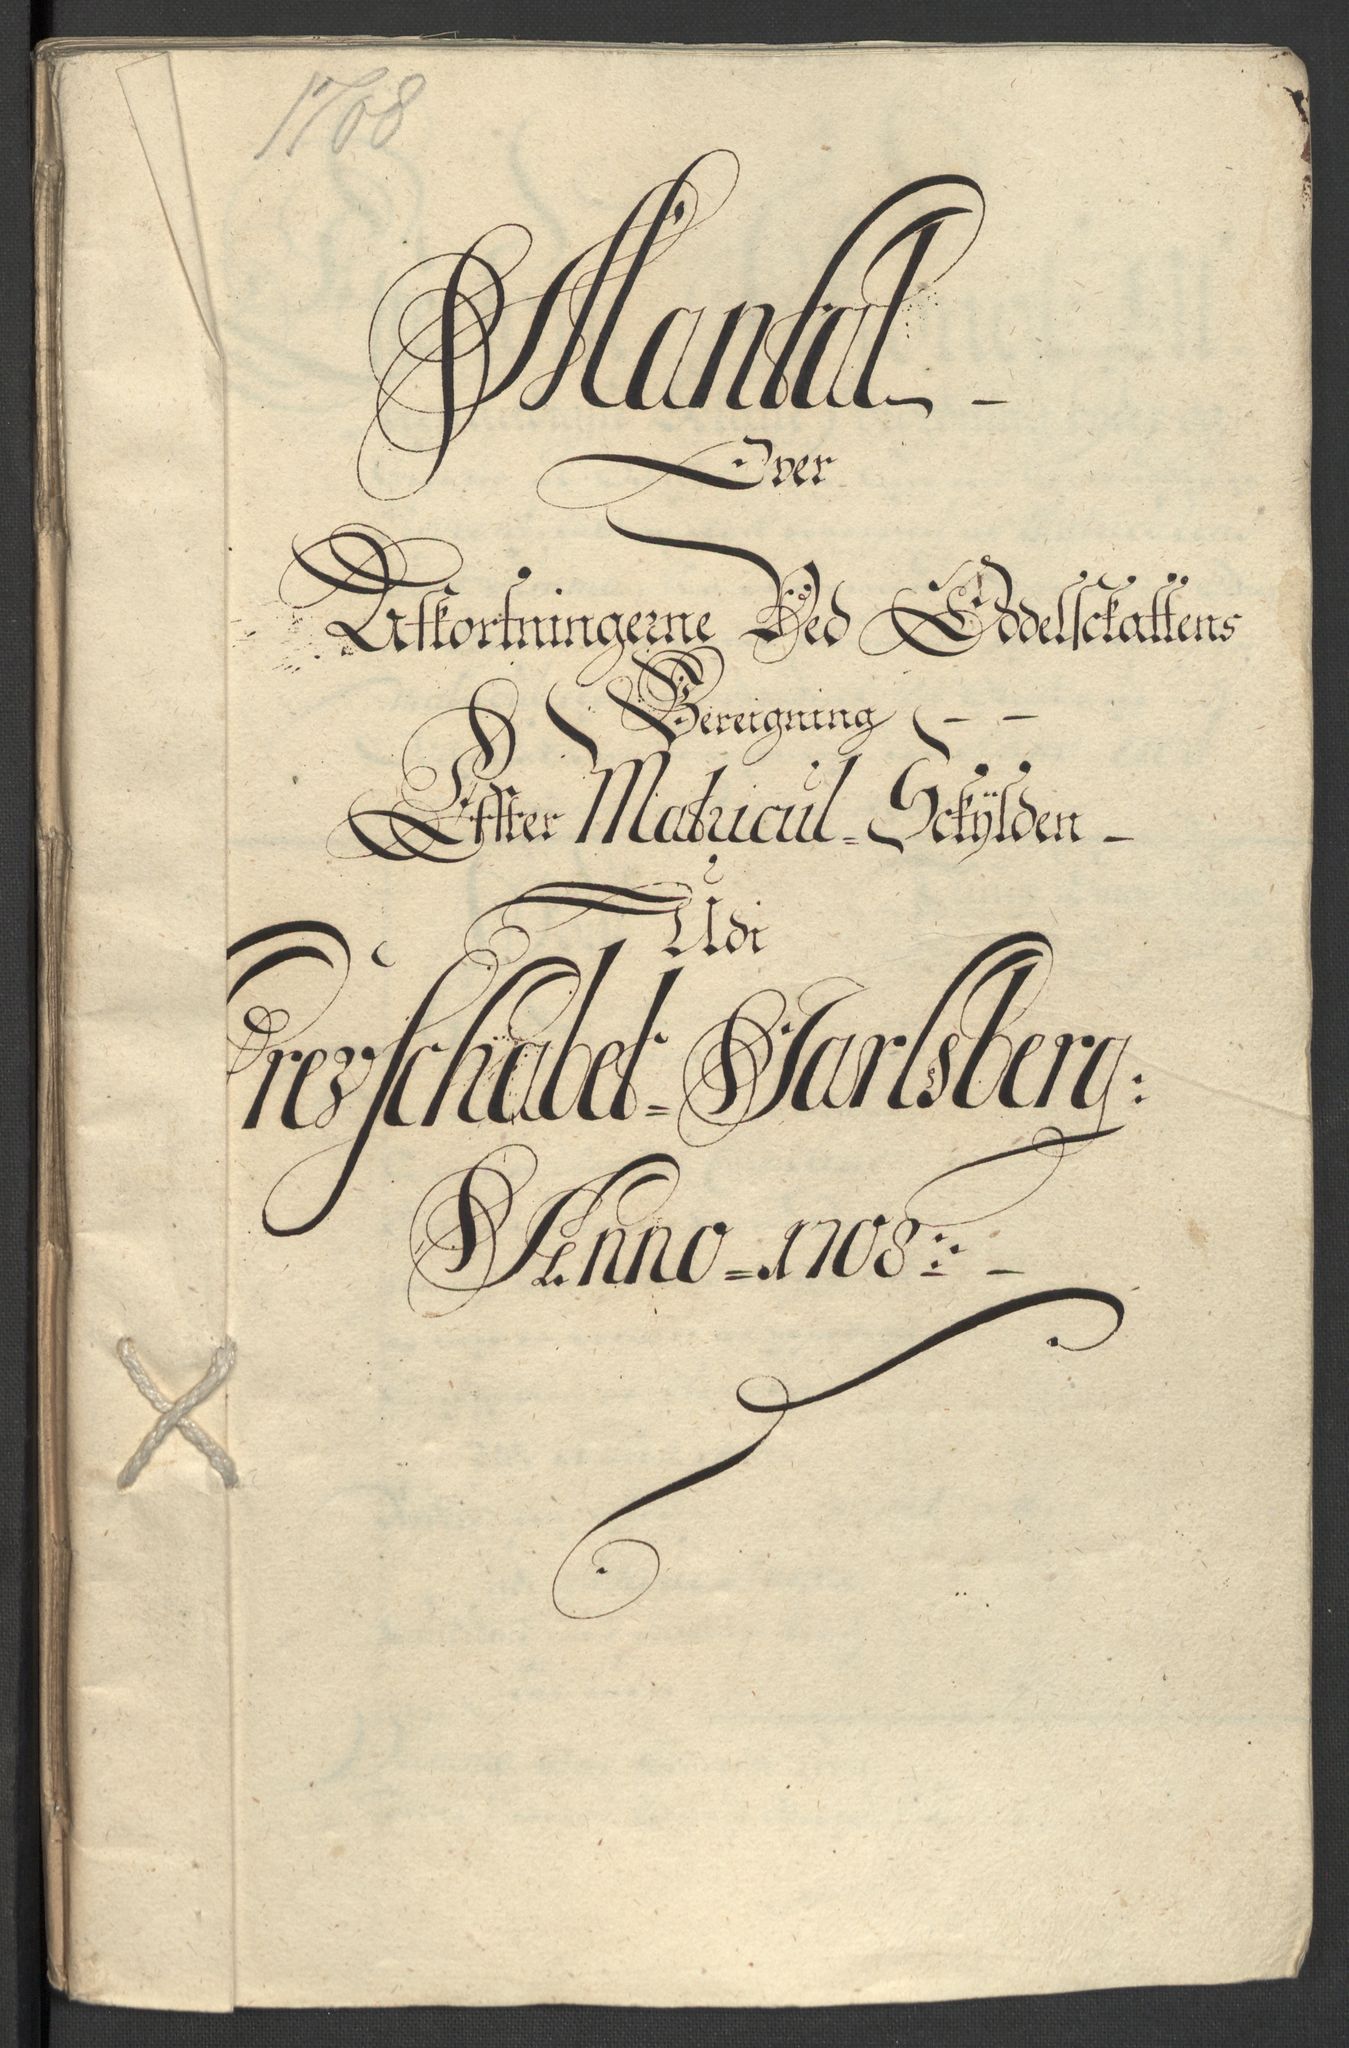 1708
Mantal -
Over
Afkortningerne Ved Oddelsckattens
Bereigning - -
Effter Matricul = Sckÿlden -
Udi
Grevschabet = Jarlsberg :
Anno = 1708 : -